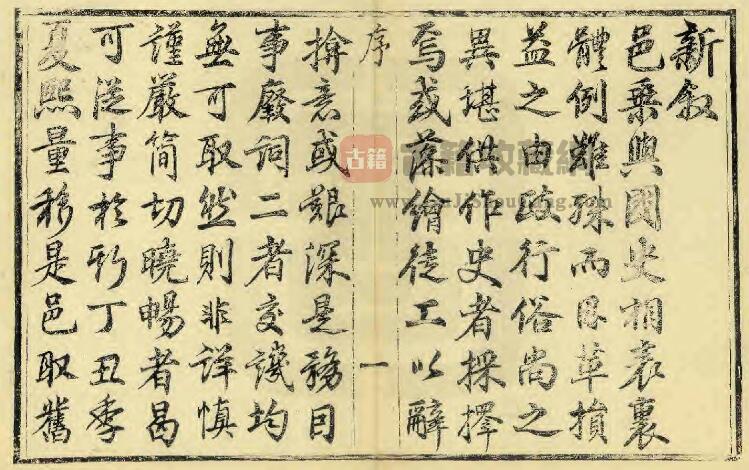 新叙
邑乗與國史相表裏
體例雖殊而因革損
益之由政行俗尚之
異堪供作史者採擇
焉或藻繪徒工以辭
序
一
揜意或艱深是務因
事廢詞二者交譏均
無可取然則非詳慎
謹嚴简切曉暢者曷
可從事於斯丁丑季
夏熙量移是邑取舊
古籍
古籍收藏網